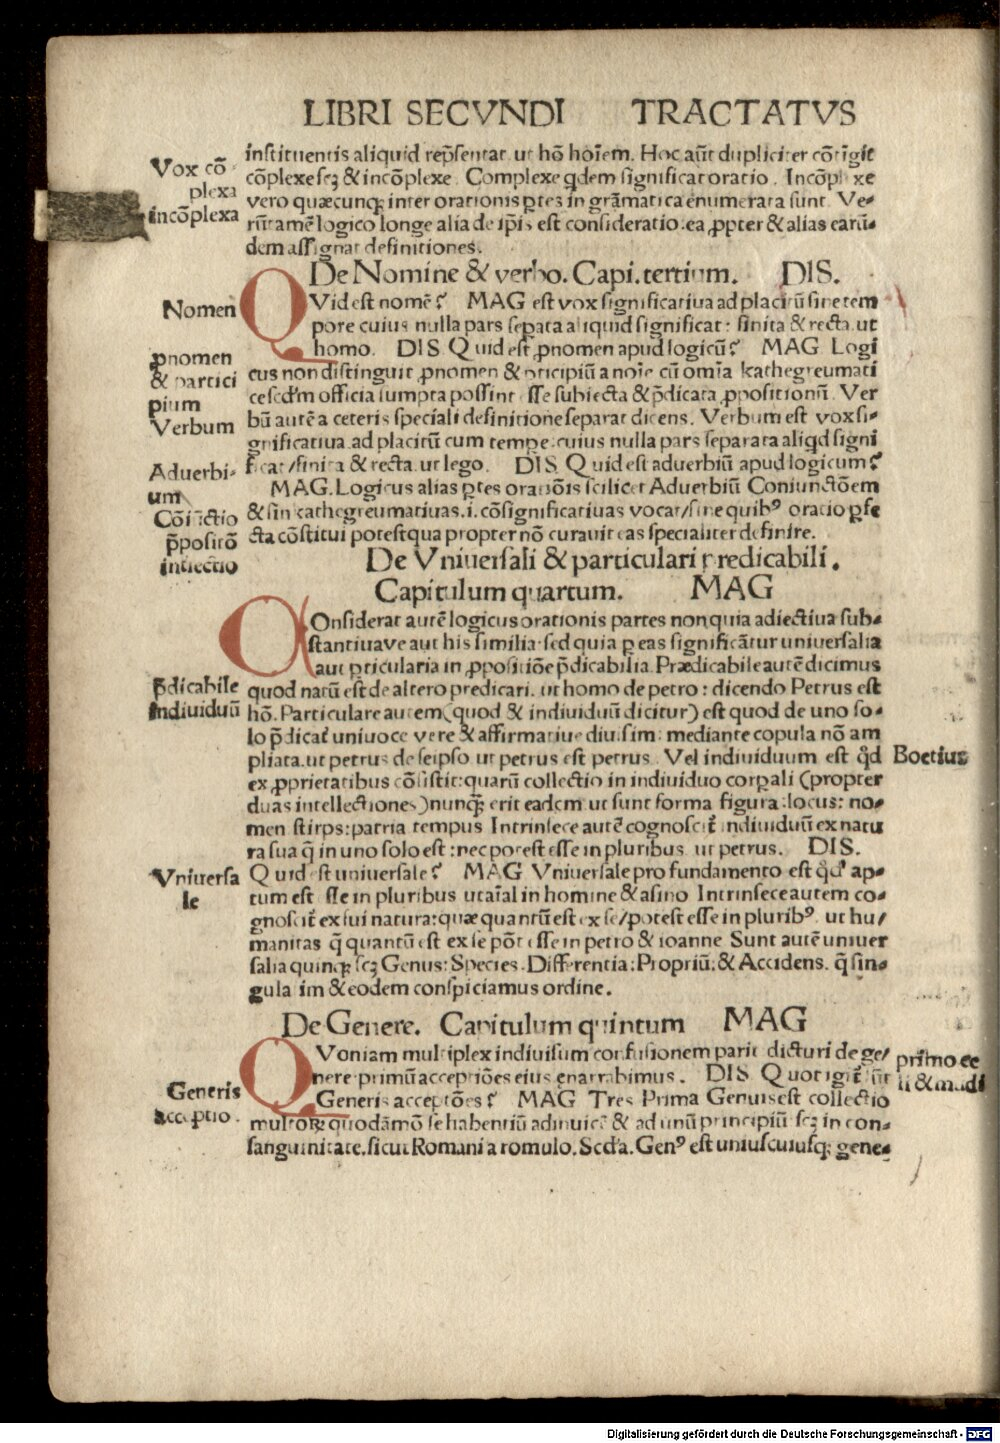 LIBRI SECVNDI TRACTATVS
Vox cõ
plexa
incõplexa
instituentis aliquid rep̃sentat. ut hõ hoĩem. Hoc aũt dupliciter cõtĩgit
cõplexe scꝫ & incõplexe. Complexe qdem significat oratio. Incõplexe
vero quæcunqꝫ inter orationis ꝑtes in grãmatica enumerata sunt. Ve-
rũtamẽ logico longe alia de ip̃is est consideratio: ea ꝓpter & alias earũ-
dem assignat definitiones.
De Nomine & verbo. Capi. tertium. DIS.
Nomen
QVid est nomẽ? MAG est vox significatiua ad placitũ sine tem
pore cuius nulla pars seꝑata aliquid significat: finita & recta. ut
homo. DIS Quid est ꝓnomen apud logicũ? MAG Logi
ꝓnomen
& partici
pium
Verbum
cus non distinguit ꝓnomen & ꝑticipiũ a noĩe cũ omĩa kathegreumati
ce scd'm officia sumpta possint esse subiecta & p̃dicata ꝓpositionũ. Ver
bũ autẽ a ceteris speciali definitione separat dicens. Verbum est vox si-
gnificatiua ad placitũ cum tempe: cuius nulla pars separata aliqd signi
ficat/finita & recta. ut lego. DIS Quid est aduerbiũ apud logicum?
Aduerbi-
um
Cõiũctio
p̃positõ
intiectio
MAG. Logicus alias ꝑtes oratiõis scilicet Aduerbiũ Coniunctõem
& sinkathegreumatiuas .i. cõsignificatiuas vocat/sine quibꝰ oratio ꝑfe
cta cõstitui potest qua propter nõ curauit eas specialiter definire.
De Vniuersali & particulari predicabili.
Capitulum quartum. MAG
COnsiderat autẽ logicus orationis partes non quia adiectiua sub-
stantiuaue aut his similia sed quia ꝑ eas significãtur uniuersalia
aut ꝑticularia in ꝓpositiõe p̃dicabilia. Prædicabile autẽ dicimus
p̃dicabile
Indiuiduũ
quod natũ est de altero predicari. ut homo de petro: dicendo Petrus est
hõ. Particulare autem (quod & indiuiduũ dicitur) est quod de uno so-
lo p̃dicat̃ uniuoce vere & affirmatiue diuisim: mediante copula nõ am
pliata. ut petrus de seipso ut petrus est petrus. Vel indiuiduum est qd̃
Boetius
ex ꝓprietatibus cõsistit: quarũ collectio in indiuiduo corꝑali (propter
duas intellectiones) nunqꝫ erit eadem ut sunt forma figura: locus: no-
men stirps: patria tempus Intrinsece autẽ cognoscit̃ indiuiduũ ex natu
ra sua q̃ in uno solo est: nec potest esse in pluribus ut petrus. DIS.
Vniuersa
le
Quid est uniuersale? MAG Vniuersale pro fundamento est qd' ap-
tum est esse in pluribus ut aĩal in homine & asino Intrinsece autem co-
gnoscit̃ ex sui natura: quæ quantũ est ex se/potest esse in pluribꝰ. ut hu/
manitas q̃ quantũ est ex se põt esse in petro & ioanne Sunt autẽ uniuer
salia quinqꝫ scꝫ Genus: Species. Differentia: Propriũ: & Accidens. q̃ sin-
gula im & eodem conspiciamus ordine.
De Genere. Capitulum quintum MAG
QVoniam multiplex indiuisum confusionem parit dicturi de ge/
nere primũ acceptiões eius enarrabimus. DIS Quot igit̃ sũt
primo ee
li & madi
Generis
acceptio.
Generis acceptões? MAG Tres Prima Genus est collectio
multoꝝ quodãmõ se habentiũ adinuicẽ & ad unũ principiũ scꝫ in con-
sanguinitate. sicut Romani a romulo. Scd'a. Genꝰ est uniuscuiusqꝫ gene-
Digitalisierung gefördert durch die Deutsche Forschungsgemeinschaft - DFG